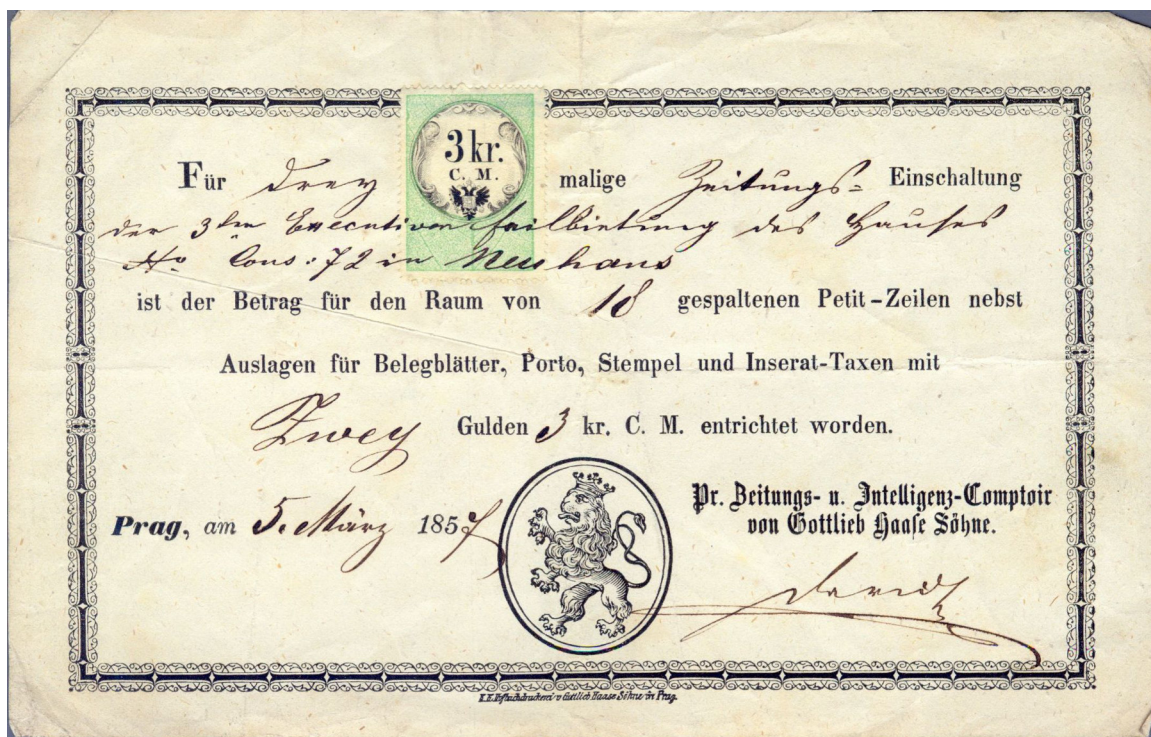 3 kr.
C. M.
Für drey malige Zeitungs= Einschaltung
der 3ten Executiven Feilbietung des Hauses
No Cons: 72 in Neuhaus
ist der Betrag für den Raum von 18 gespaltenen Petit-Zeilen nebst
Auslagen für Belegblätter, Porto, Stempel und Inserat-Taxen mit
Zwey Gulden 3 kr. C. M. entrichtet worden.
Prag, am 5. März 1857
Pr. Zeitungs- u. Intelligenz-Comptoir
von Gottlieb Haase Söhne.
K.K.Hofbuchdruckerei v Gottlieb Haase Söhne in Prag.